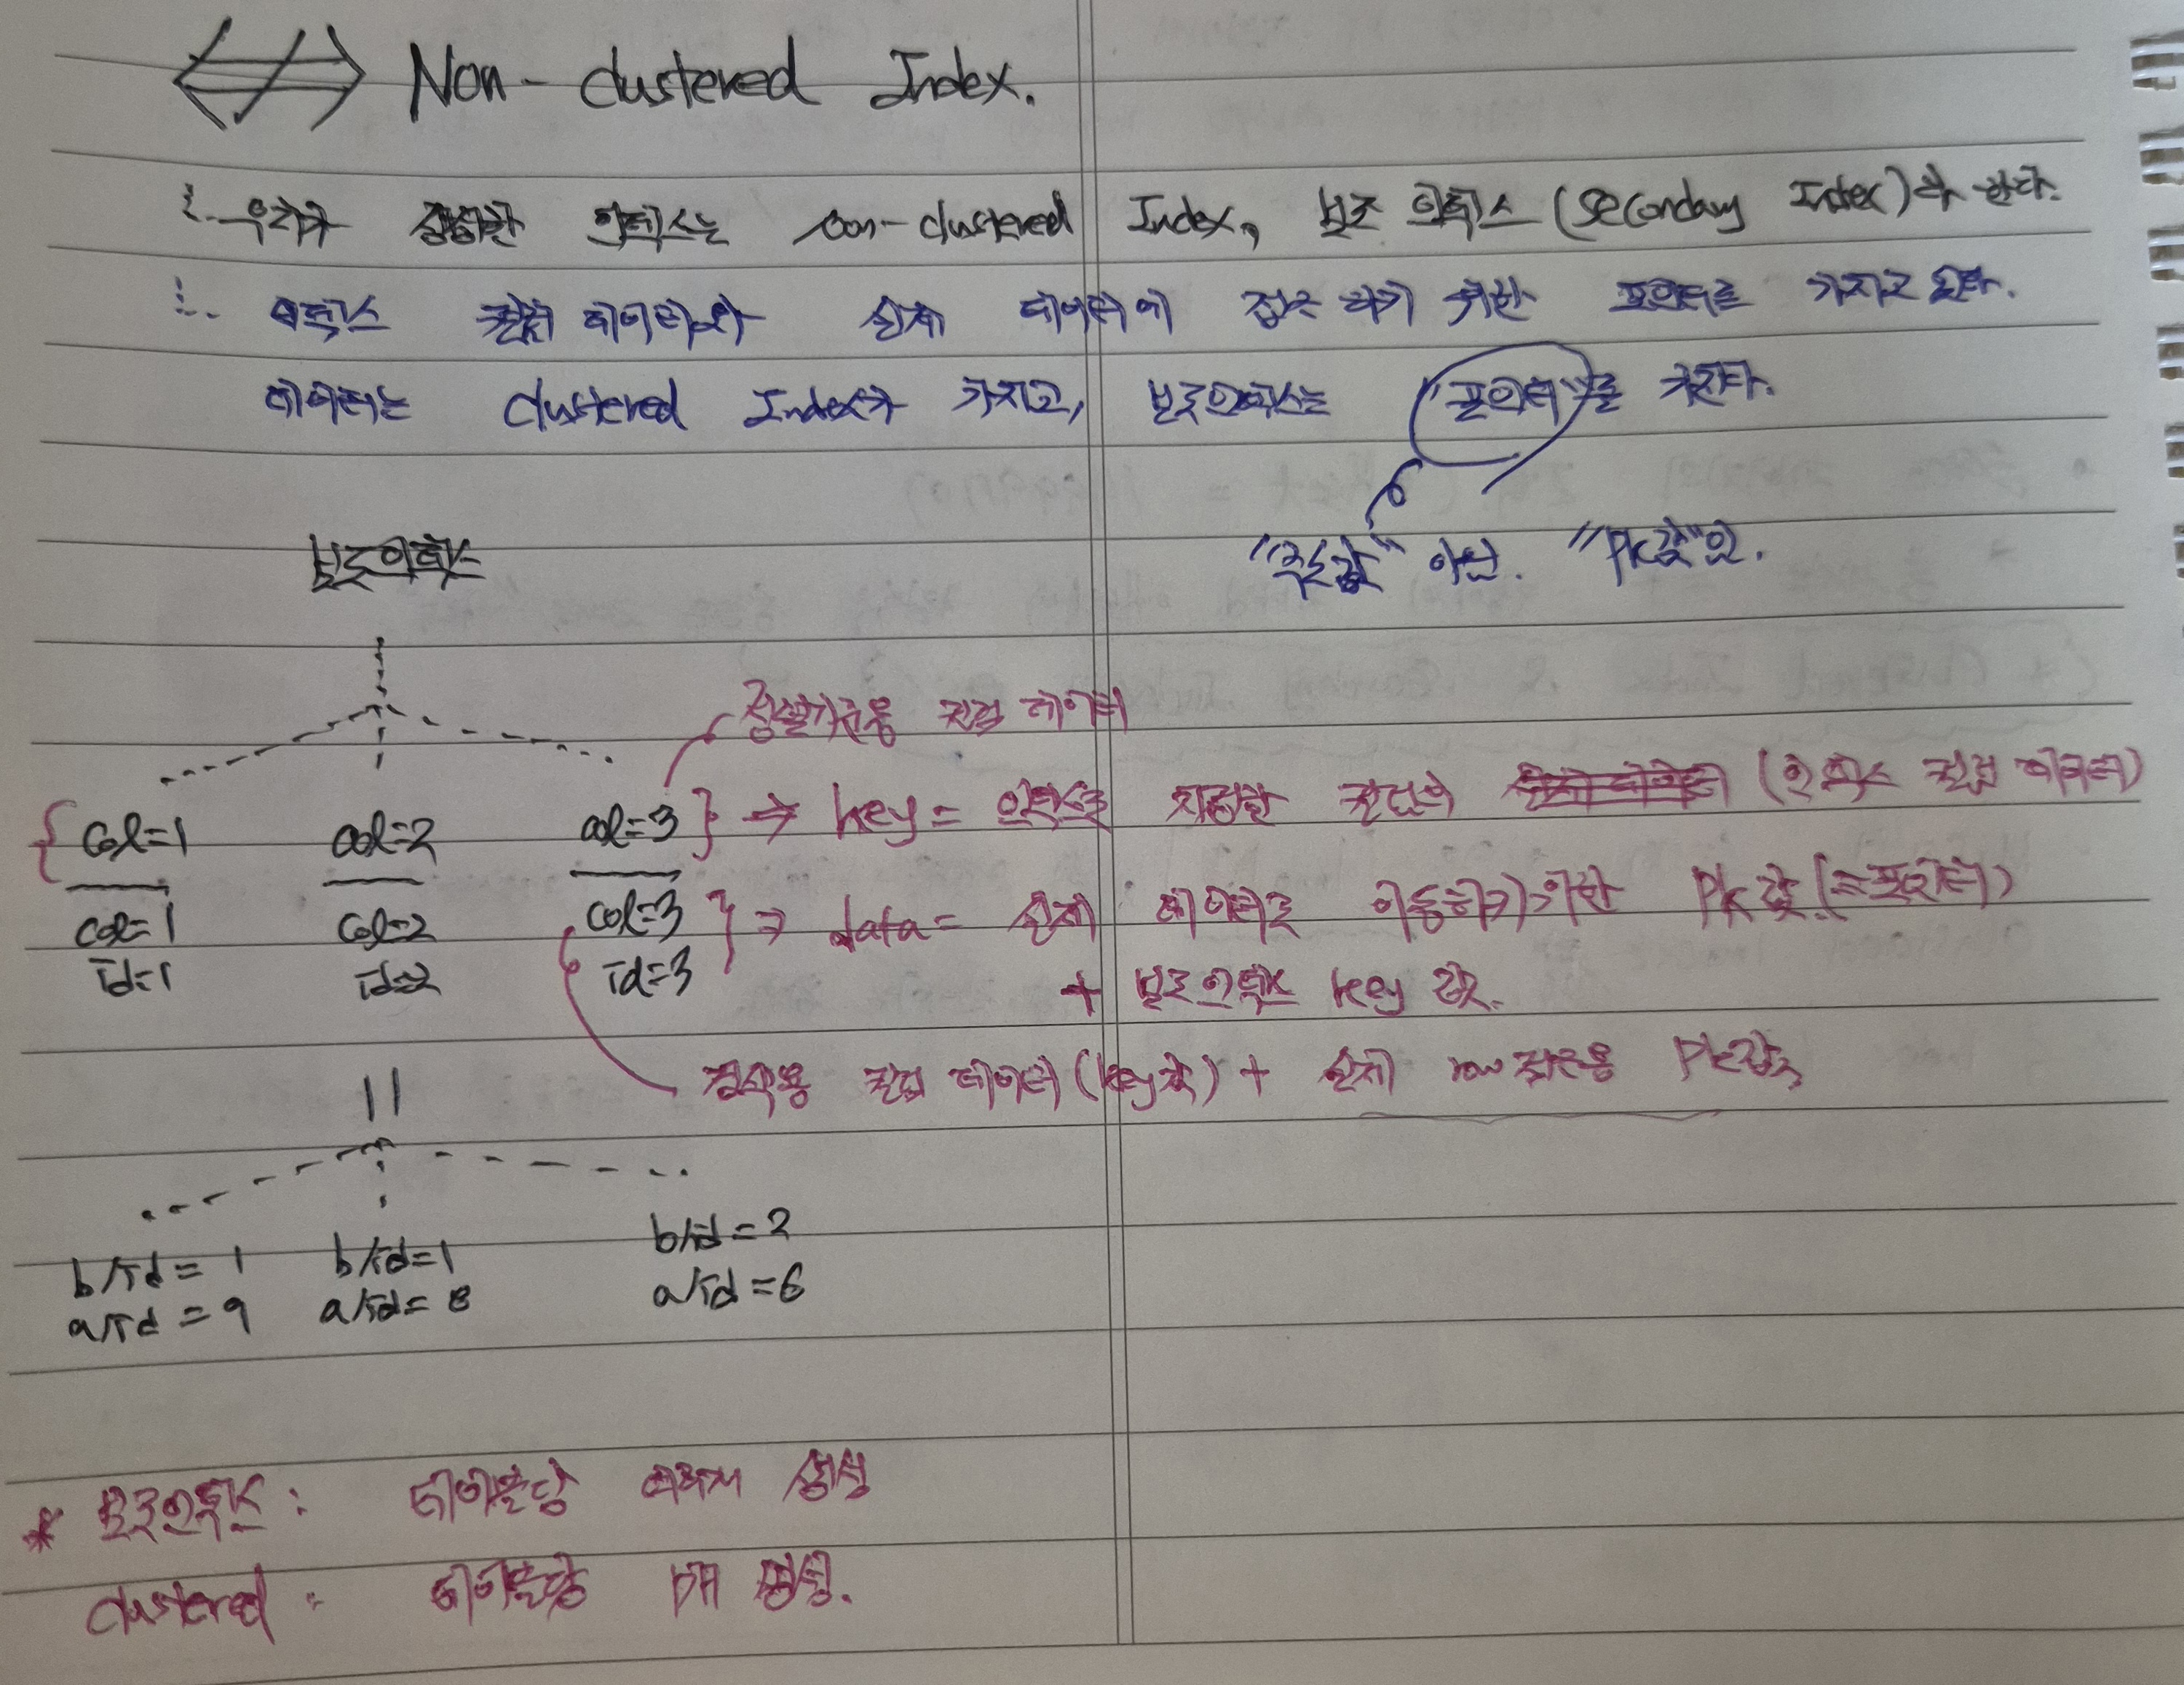 Non-clustered Index.
우리가 생성한 인덱스는 non-clustered Index, 보조 인덱스 (Secondary Index)라 한다.
인덱스 컬럼 데이터와 실제 데이터에 접근하기 위한 포인터를 가지고 있다.
데이터는 clustered Index가 가지고, 보조인덱스는 "포인터"를 가진다.
"주소값" 아닌. "PK값"임.
보조인덱스
정렬기준용 컬럼 데이터
col=1 col=2 col=3 } ⇒ key = 인덱스로 지정한 컬럼의 (인덱스 컬럼 데이터)
col=1 col=2 col=3 } ⇒ data = 실제 데이터로 이동하기위한 PK값.(=포인터)
id=1 id=2 id=3 + 보조인덱스 key 값.
검색용 컬럼 데이터 (key값) + 실제 row 접근용 PK값
b/id = 1 b/id=1 b/id = 2
a/id = 9 a/id = 8 a/id = 6
* 보조인덱스 : 테이블당 여러개 생성
clustered : 테이블당 1개 생성.